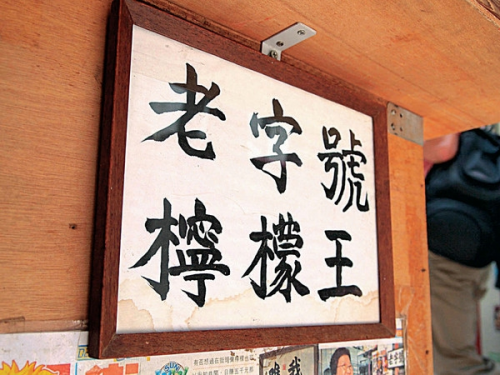 老字號
檸檬王